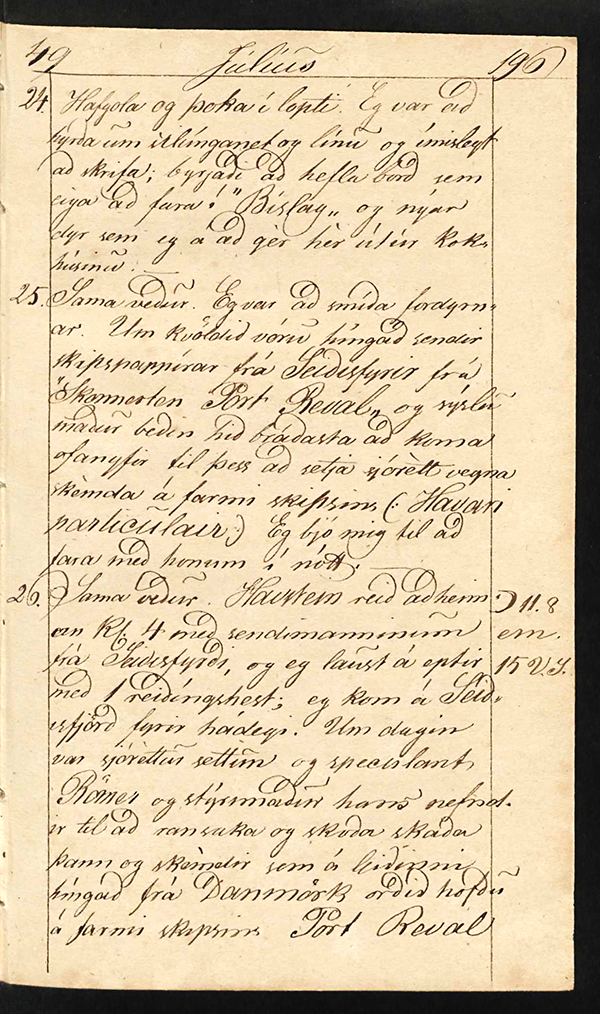 49 Július 196
24. Hafgola og þoka í lopti. Eg var að
fyrða um silúnganet og línu og ímislegt
að skrifa; byrjaði að hefla borð sem
eiga að fara í "Bislag„ og nýar
dyr sem eg á að gèr hèr útúr kok-
húsinu. —
25. Sama veður. Eg var að smíða fordyrn-
ar. Um kvöldið vóru híngað sendir
skipspappírar frá Seidisfyrir frá
"Skonnerten Port Reval„ og sýslu
maður beðin hið bráðasta að koma
ofanyfir til þess að setja sjórètt vegna
skèmda á farmi skipsins (: Havari
particulair:) Eg bjó mig til að
fara með honum í nótt. —
26. Sama veður. Havstein reið að heim- ☽ 11.8
an Kl. 4 með sendimanninum em.
frá Seidisfyrði, og eg laust á eptir 15 V.S.
með 1 reiðíngshest; eg kom á Seid-
isfjörð fyrir hádegi. Um dagin
var sjórèttur settur og speculant
Römer og stýrimaður hans nefnd-
ir til að ransaka og skoða skaða
þann og skèmdir sem á leiðinni
híngað frá Danmörk orðið höfðu
á farmi skipsins Port Reval